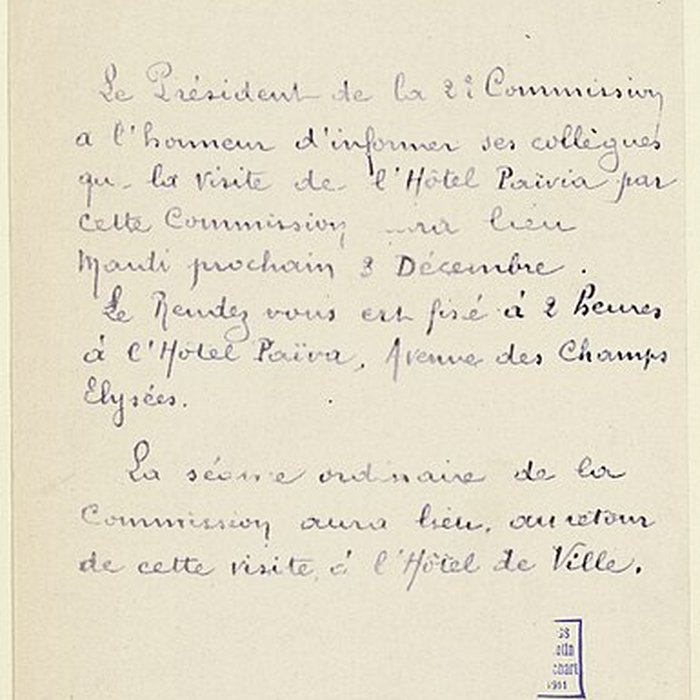 Le Président de la 2e Commission
a l'honneur d'informer ses collègues
que la visite de l'Hôtel Païvia par
cette Commission aura lieu
Mardi prochain 3 Décembre.
Le Rendez vous est fixé à 2 heures
à l'Hôtel Païva, Avenue des Champs
Elysées.
La séance ordinaire de la
Commission aura lieu, au retour
de cette visite, à l'Hôtel de Ville.